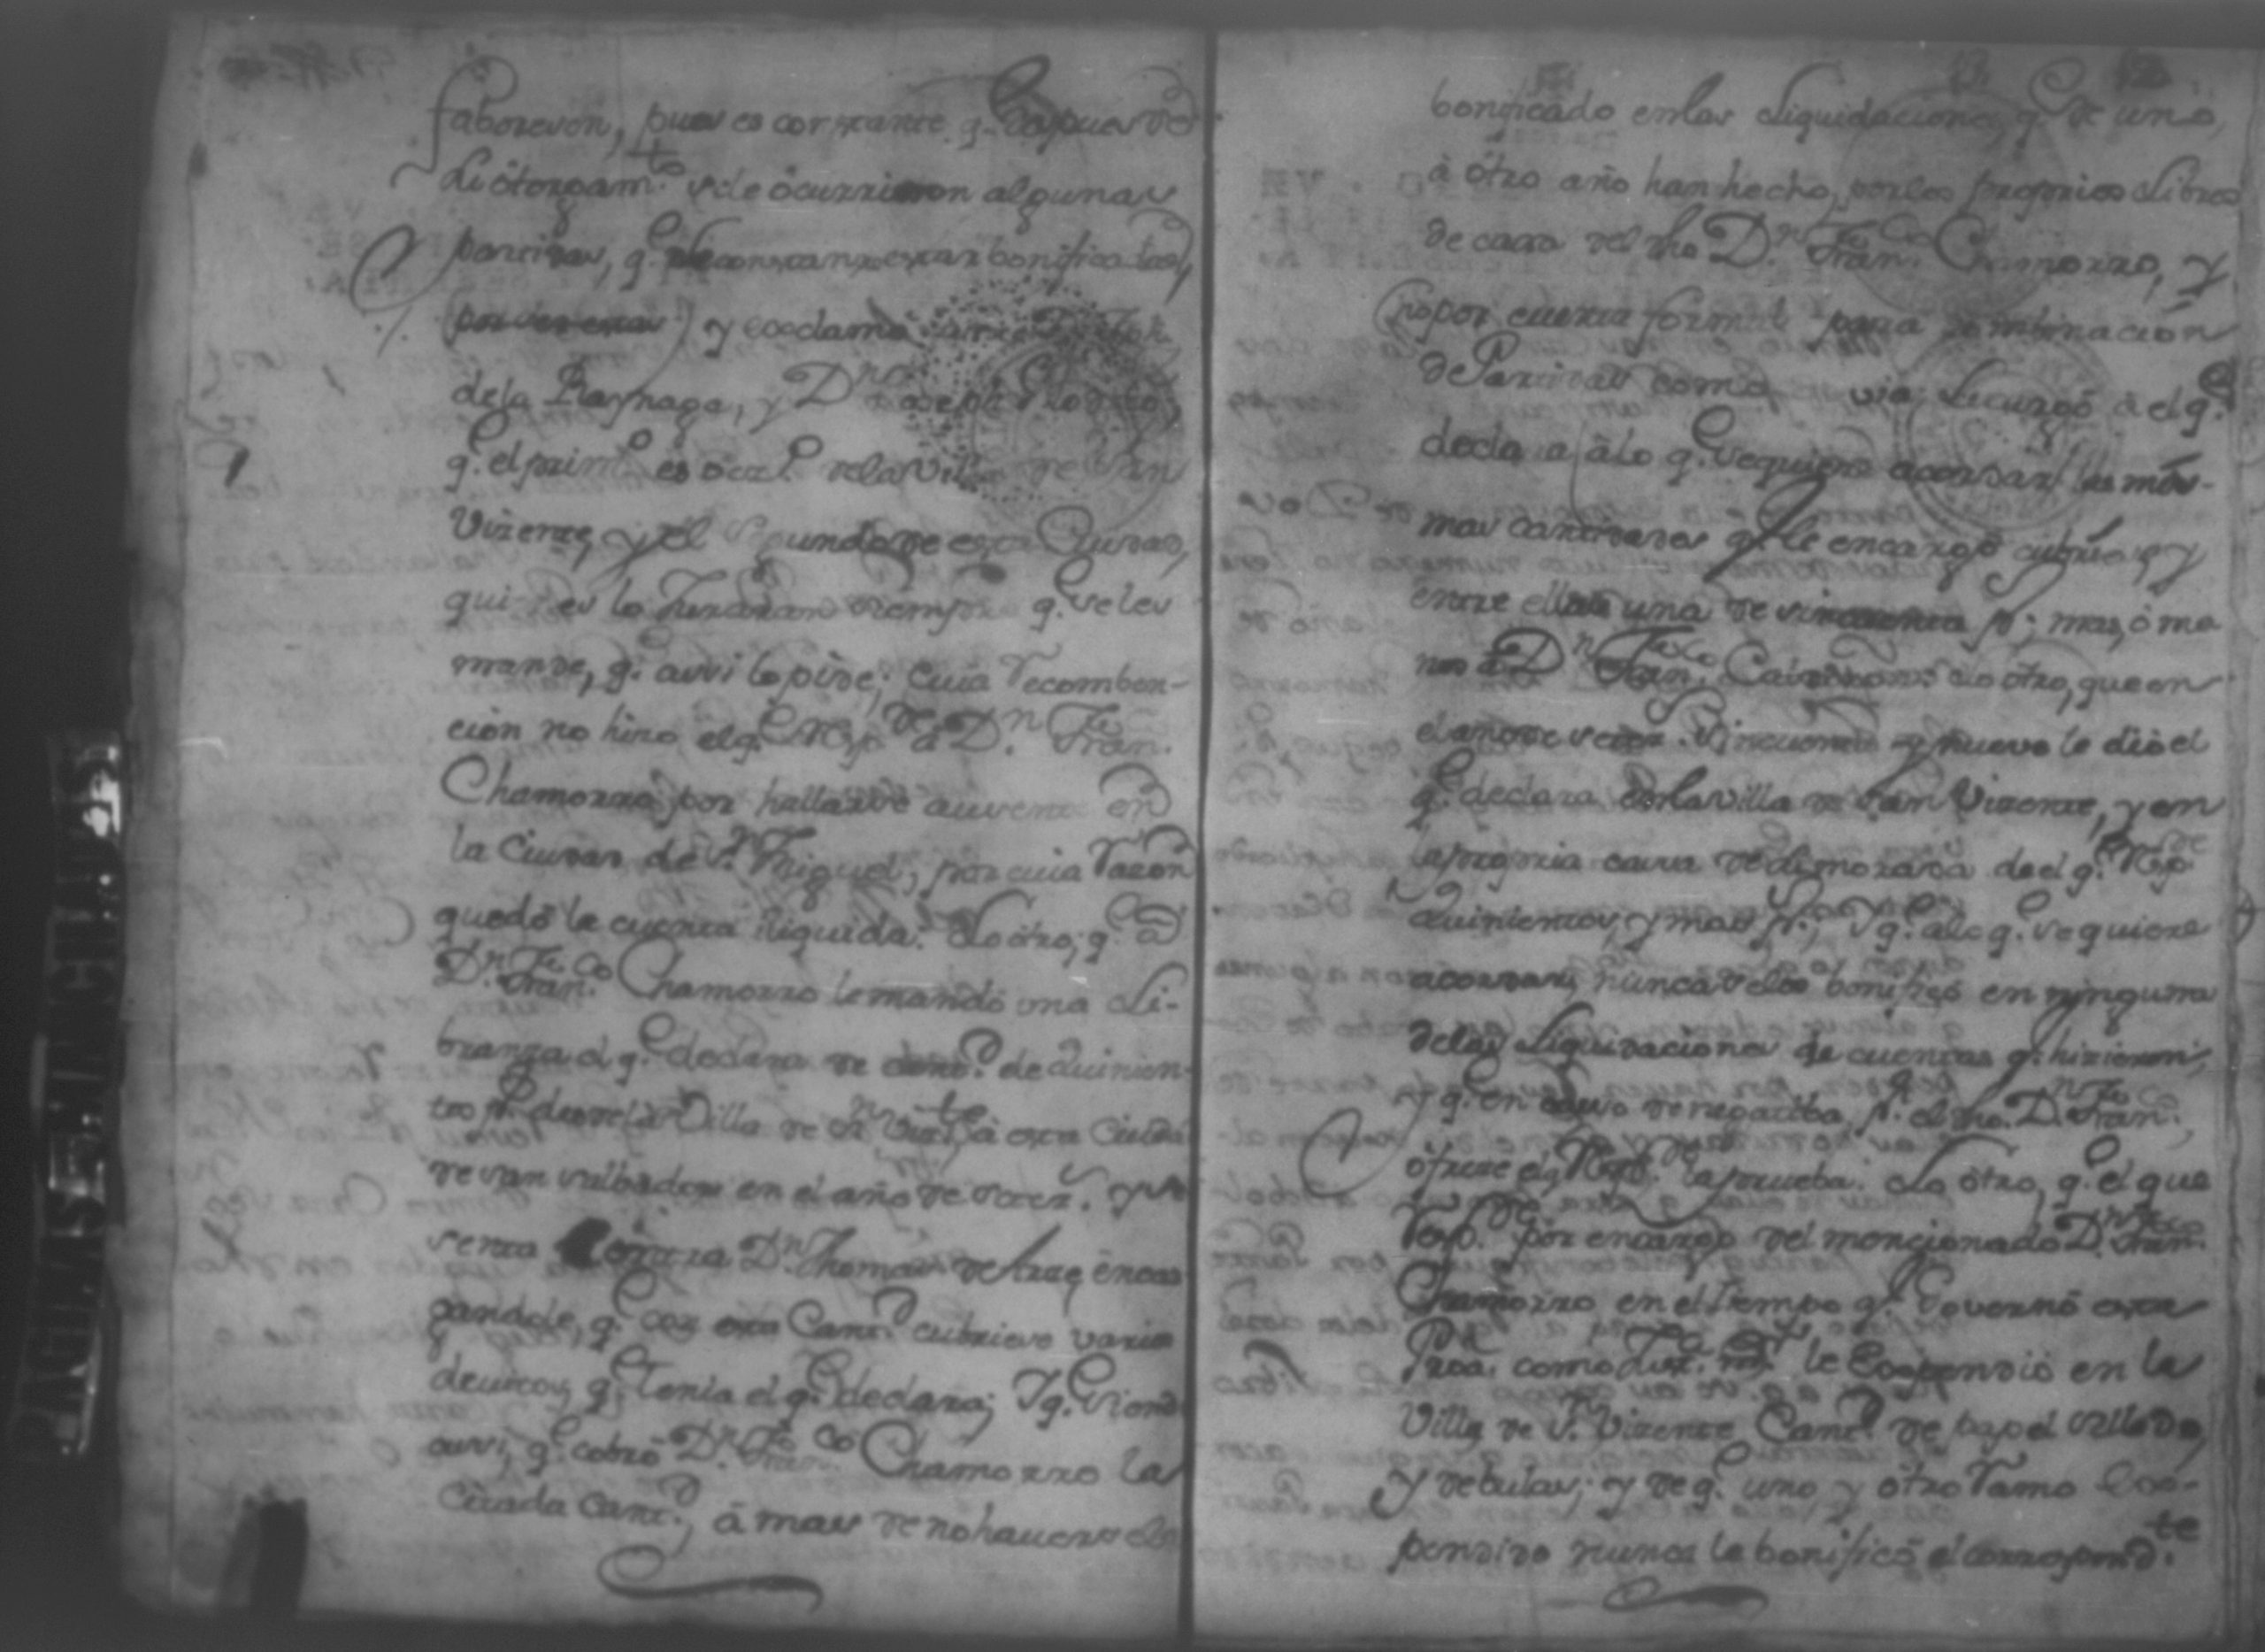 faborecen, pues es constante q.e despues de
su ótorgam.to se le ócurrieron algunas
partidas, q.e le constan estar bonificadas,
y exclama
de la Raynaga, y D.n
q.e el prim.o es vez.o de la Villa de San
Vizente, y el segundo de esta Ciudad,
quienes lo Juraran siempre q.e se les
mande, q.e assi lo pide; cuia recomben-
cion no hizo el q.e Resp.de a D.n Fran.co
Chamorro por hallarse ausente en
la Ciudad de S.n Miguel, por cuia razon
quedó la cuenta iliquida. Lo ótro, q.e a
D.n Fran.co Chamorro le mandó una Li-
branza el q.e declara de cant.d de Quinien-
tos p.s desde la Villa de S.n Viz.te á esta Ciudad
de San Salbador en el año de setez.s y se
senta contra D.n Thomas de Arze encar
gandole, q.e con esta Cant.d cubriese varios
devitos, q.e tenia el q.e declara; Y q.e siendo
assi, q.e cobró D.n Fran.co Chamorro la
citada cant.d, á mas de no haverselo
bonificado en las Liquidaciones, q.e de uno,
à ótro año han hecho, por los proprios Libros
de caxa del dho D.n Fran.co Chamorro, y
no por cuenta formal para combinación
de Partidas como á el q.e
declara á lo q.e se quiere acordar las mis-
mas cantidades q.e le encargó cubriese, y
entre ellas una de cincuenta p.s mas, ó me
nos á D.n Fran.co Lo ótro, que en
el año de setez.s Cincuenta y nueve le dió el
q.e declara en la Villa de San Vizente, y en
la propria casa de la morada de el q.e Resp.de
Quinientos, y mas p.s, y q.e a lo q.e se quiere
acordar, nunca se los bonificó en ninguna
de las Liquidaciones de cuentas q.e hizieron;
y q.e en caso de negatiba p.r el dho. D.n Fran.co,
ófreze el q.e Resp.de la prueba. Lo ótro, q.e el que
Resp.de por encargo del mencionado D.n Fran.co
Chamorro en el tiempo q.e Governó esta
Prov.a como Just.a m.r le Expendió en la
Villa de S.n Vizente Cant.d de papel sellado,
y de bulas; y de q.e uno y ótro ramo Ex-
pendido nunca le bonificó el correspond.te